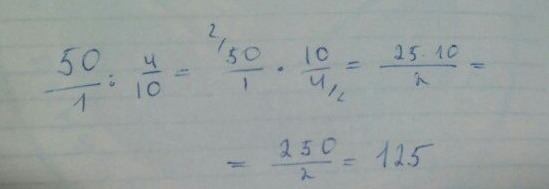 50/1 : 4/10 = 2/ 50/1 · 10/4 /2 = 25·10/2 =
= 250/2 = 125